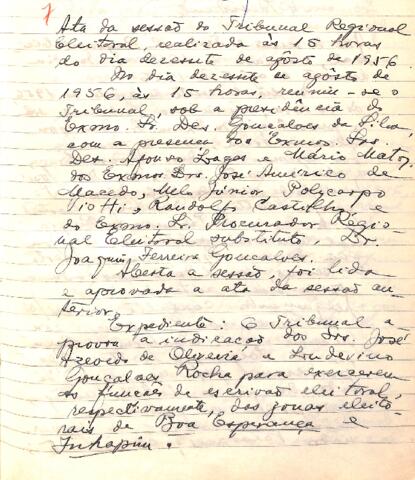 1
Ata da sessão do Tribunal Regional
Eleitoral, realizada às 15 horas
do dia dezessete de agôsto de 1956.
No dia dezessete de agôsto de
1956, às 15 horas, reuniu-se o
Tribunal, sob a presidência do
Exmo. Sr. Des. Gonçalves da Silva,
com a presença dos Exmos. Srs.
Des. Afonso Lages e Mário Matos,
dos Exmos. Drs. José Américo de
Macedo, Melo Júnior, Polycarpo
Viotti, Randolfo Castilho, e
do Exmo. Sr. Procurador Regio-
nal Eleitoral substituto, Dr.
Joaquim Ferreira Gonçalves.
Aberta a sessão, foi lida
e aprovada a ata da sessão an-
terior.
Expediente: O Tribunal a-
provou a indicação dos Srs. José
Azevedo de Oliveira e
Gonçalves Rocha para exercerem
as funções de escrivão eleitoral,
respectivamente, das zonas eleito-
rais de Boa Esperança e
Inhapim.